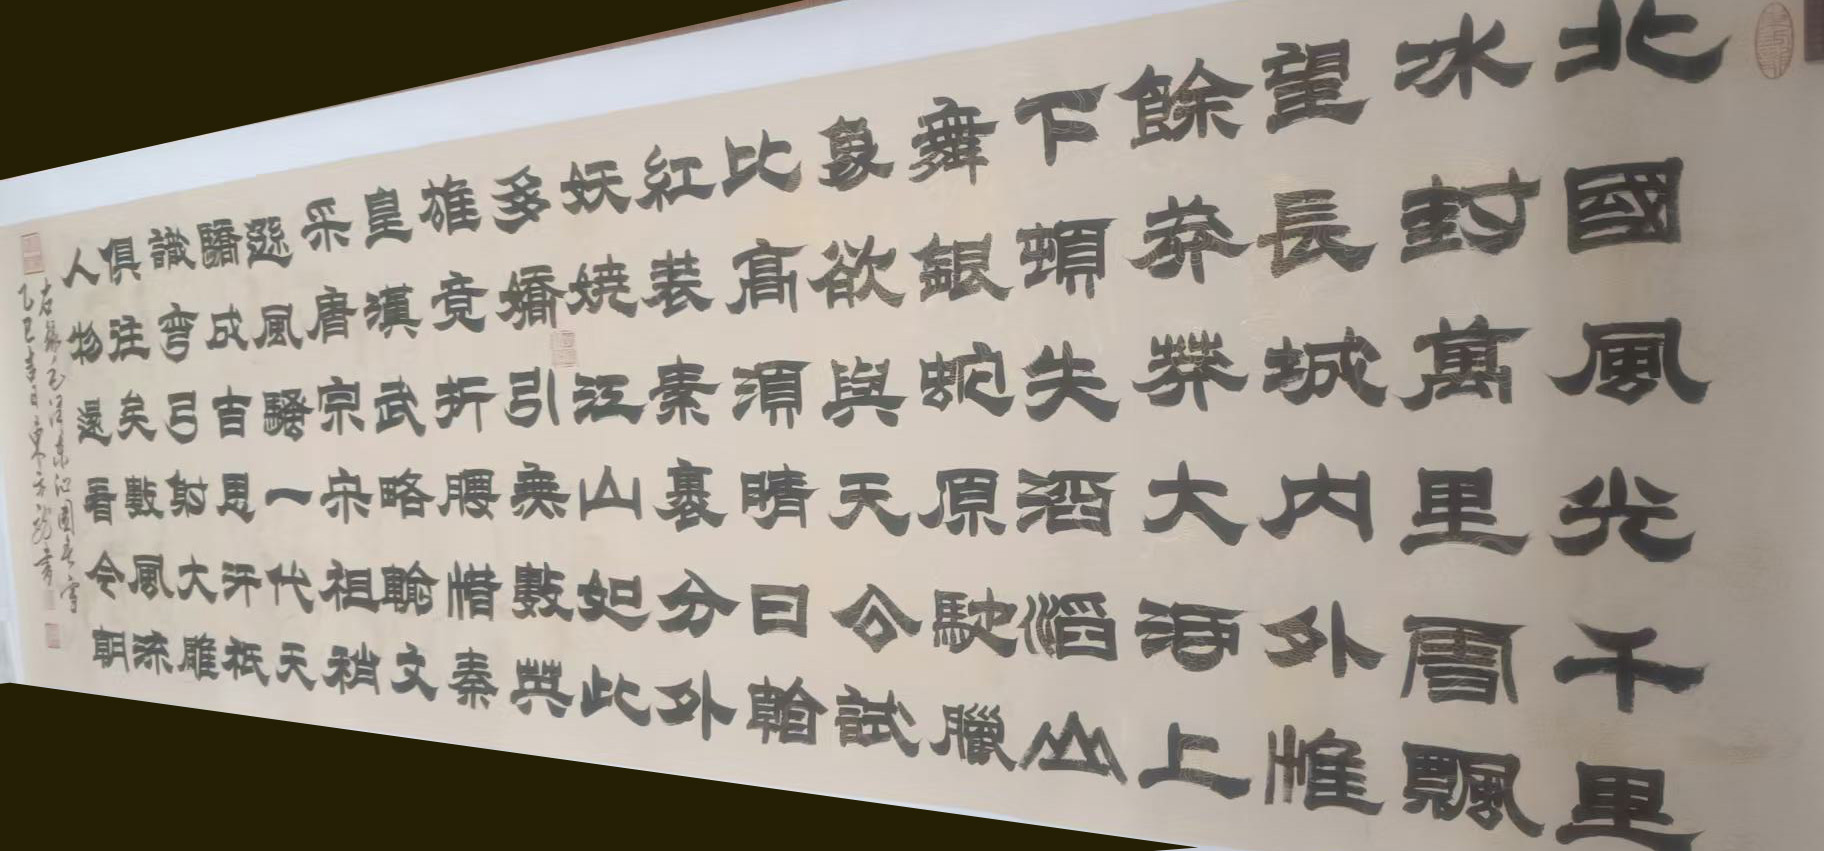 北國風光千里
冰封萬里雪飄
望長城内外惟
餘莽莽大河上
下頓失滔滔山
舞銀蛇原馳臘
象欲與天公試
比高須晴日看
紅装素裹分外
妖嬈江山如此
多嬌引無數英
雄竞折腰惜秦
皇漢武略輸文
采唐宗宋祖稍
遜風騷一代天
驕成吉思汗祇
識彎弓射大雕
俱往矣數風流
人物還看今朝
右録毛澤東沁園春雪
乙巳吉日東方龍書